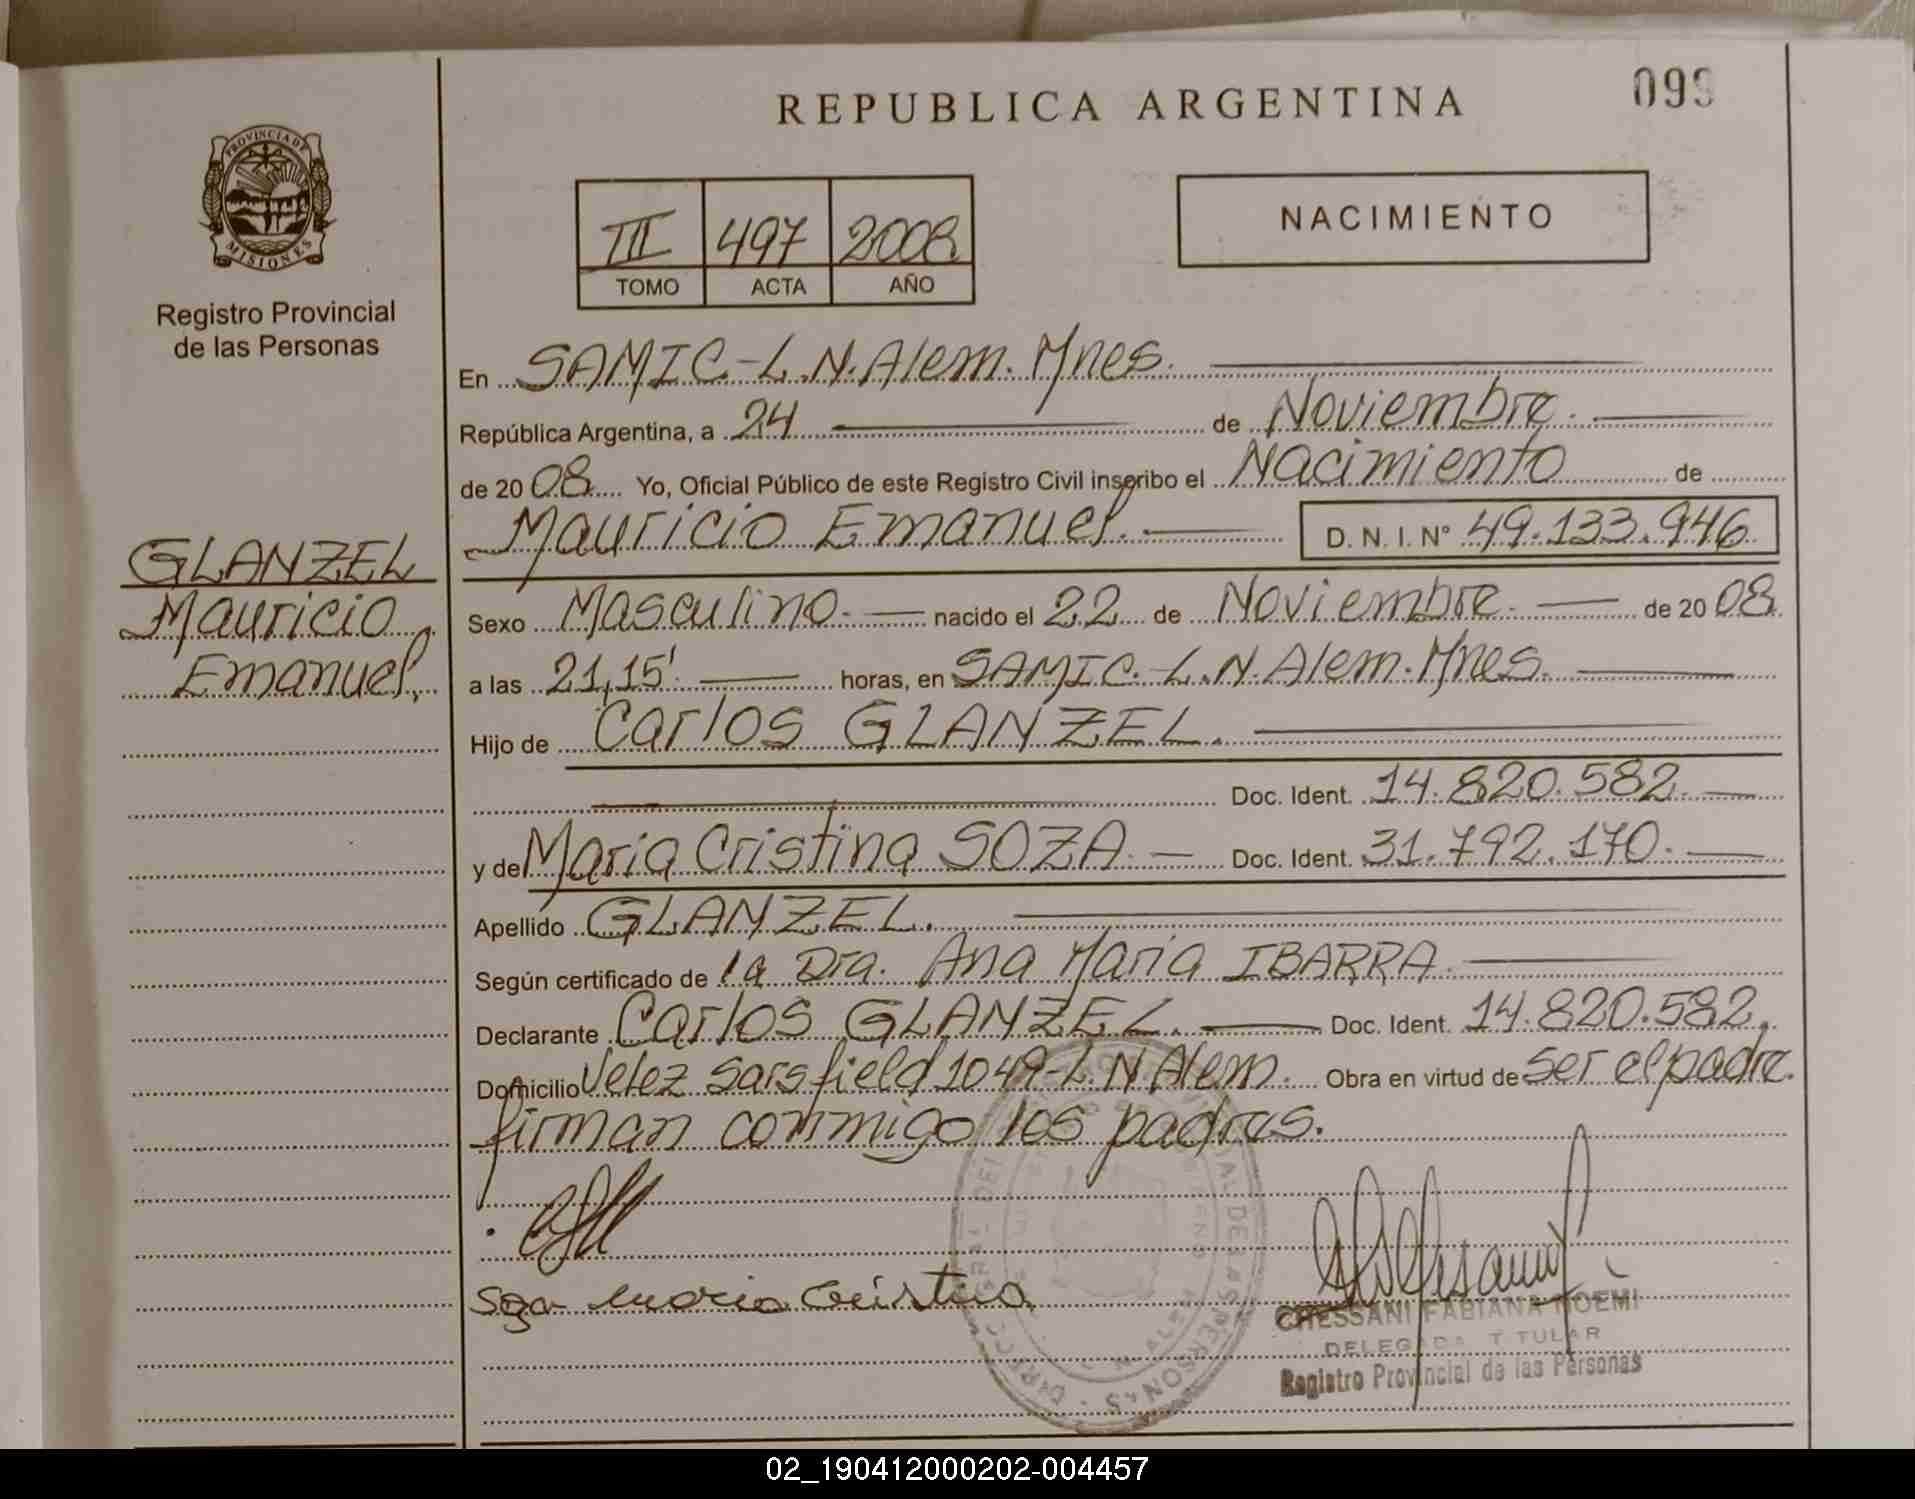 REPUBLICA ARGENTINA
099
PROVINCIA DE
MISIONES
Registro Provincial
de las Personas
III 497 2008
TOMO ACTA AÑO
NACIMIENTO
En SAMIC-L.N.Alem.Mnes.
República Argentina, a 24 de Noviembre.
de 2008 Yo, Oficial Público de este Registro Civil inscribo el Nacimiento de
Mauricio Emanuel. D.N.I.Nº 49.133.946
GLANZEL
Mauricio
Emanuel.
Sexo Masculino. nacido el 22 de Noviembre. de 2008
a las 21,15'. horas, en SAMIC.-L.N.Alem.Mnes.
Hijo de Carlos GLANZEL.
Doc. Ident. 14.820.582.
y de Maria Cristina SOZA. Doc. Ident. 31.792.170.
Apellido GLANZEL.
Según certificado de la Dra. Ana Maria IBARRA.
Declarante Carlos GLANZEL. Doc. Ident. 14.820.582.
Domicilio Velez Sarsfield 1049-L.N Alem. Obra en virtud de ser el padre.
firman conmigo los padres.
CHESSANI FABIANA NOEMI
DELEGADA TITULAR
Registro Provincial de las Personas
02_190412000202-004457